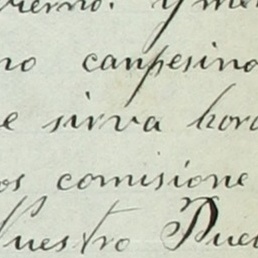 ierno. y me
no canpesino
e sirva hora
os comisione
Nuestro Pue